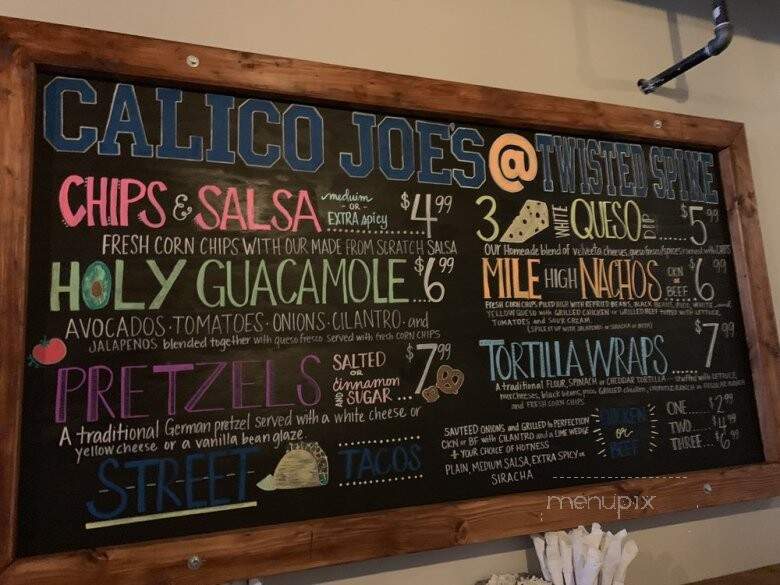 CALICO JOE'S @ TWISTED SPIKE
CHIPS & SALSA meduim - OR - EXTRA spicy $4.99
FRESH CORN CHIPS WITH OUR MADE FROM SCRATCH SALSA
HOLY GUACAMOLE $6.99
AVOCADOS · TOMATOES · ONIONS · CILANTRO · and
JALAPENOS blended together with queso fresco served with fresh CORN CHIPS
PRETZELS SALTED OR cinnamon AND SUGAR ... $7.99
A traditional German pretzel served with a white cheese or
yellow cheese or a vanilla bean glaze.
STREET TACOS
3 WHITE QUESO DIP $5.99
Our Homeade blend of velveeta cheeses, queso fresco/spices served with CHIPS
MILE HIGH NACHOS CKN or BEEF $6.99
FRESH CORN CHIPS PILED HIGH WITH REFRITO BEANS, BLACK BEANS, RICE, WHITE and
YELLOW QUESO with GRILLED CHICKEN or GRILLED BEEF topped with LETTUCE,
TOMATOES and SOUR CREAM.
(SPICE IT UP WITH JALAPENO or SIRACHA or BOTH)
TORTILLA WRAPS ... $7.99
A traditional FLOUR, SPINACH or CHEDDAR TORTILLA - stuffed with LETTUCE,
mix cheeses, black beans, rice, GRILLED chicken,
and FRESH CORN CHIPS
SAUTEED ONIONS and GRILLED to PERFECTION
CKN or BF with CILANTRO and a LIME WEDGE
+ YOUR CHOICE OF HOTNESS
PLAIN, MEDIUM SALSA, EXTRA SPICY or
SIRACHA
CHICKEN or BEEF
ONE ... $2.99
TWO ... $4.99
THREE ... $6.99
menupix